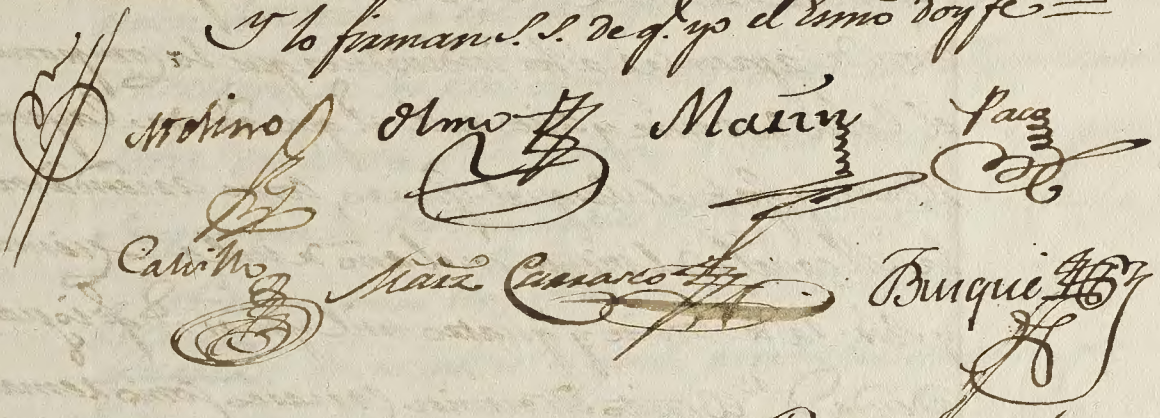 y lo firman S. S. de q.e yo el Essno doy fe =
Molino Olmo Marin Paco
Calvillo Marz Carrasco Burguè